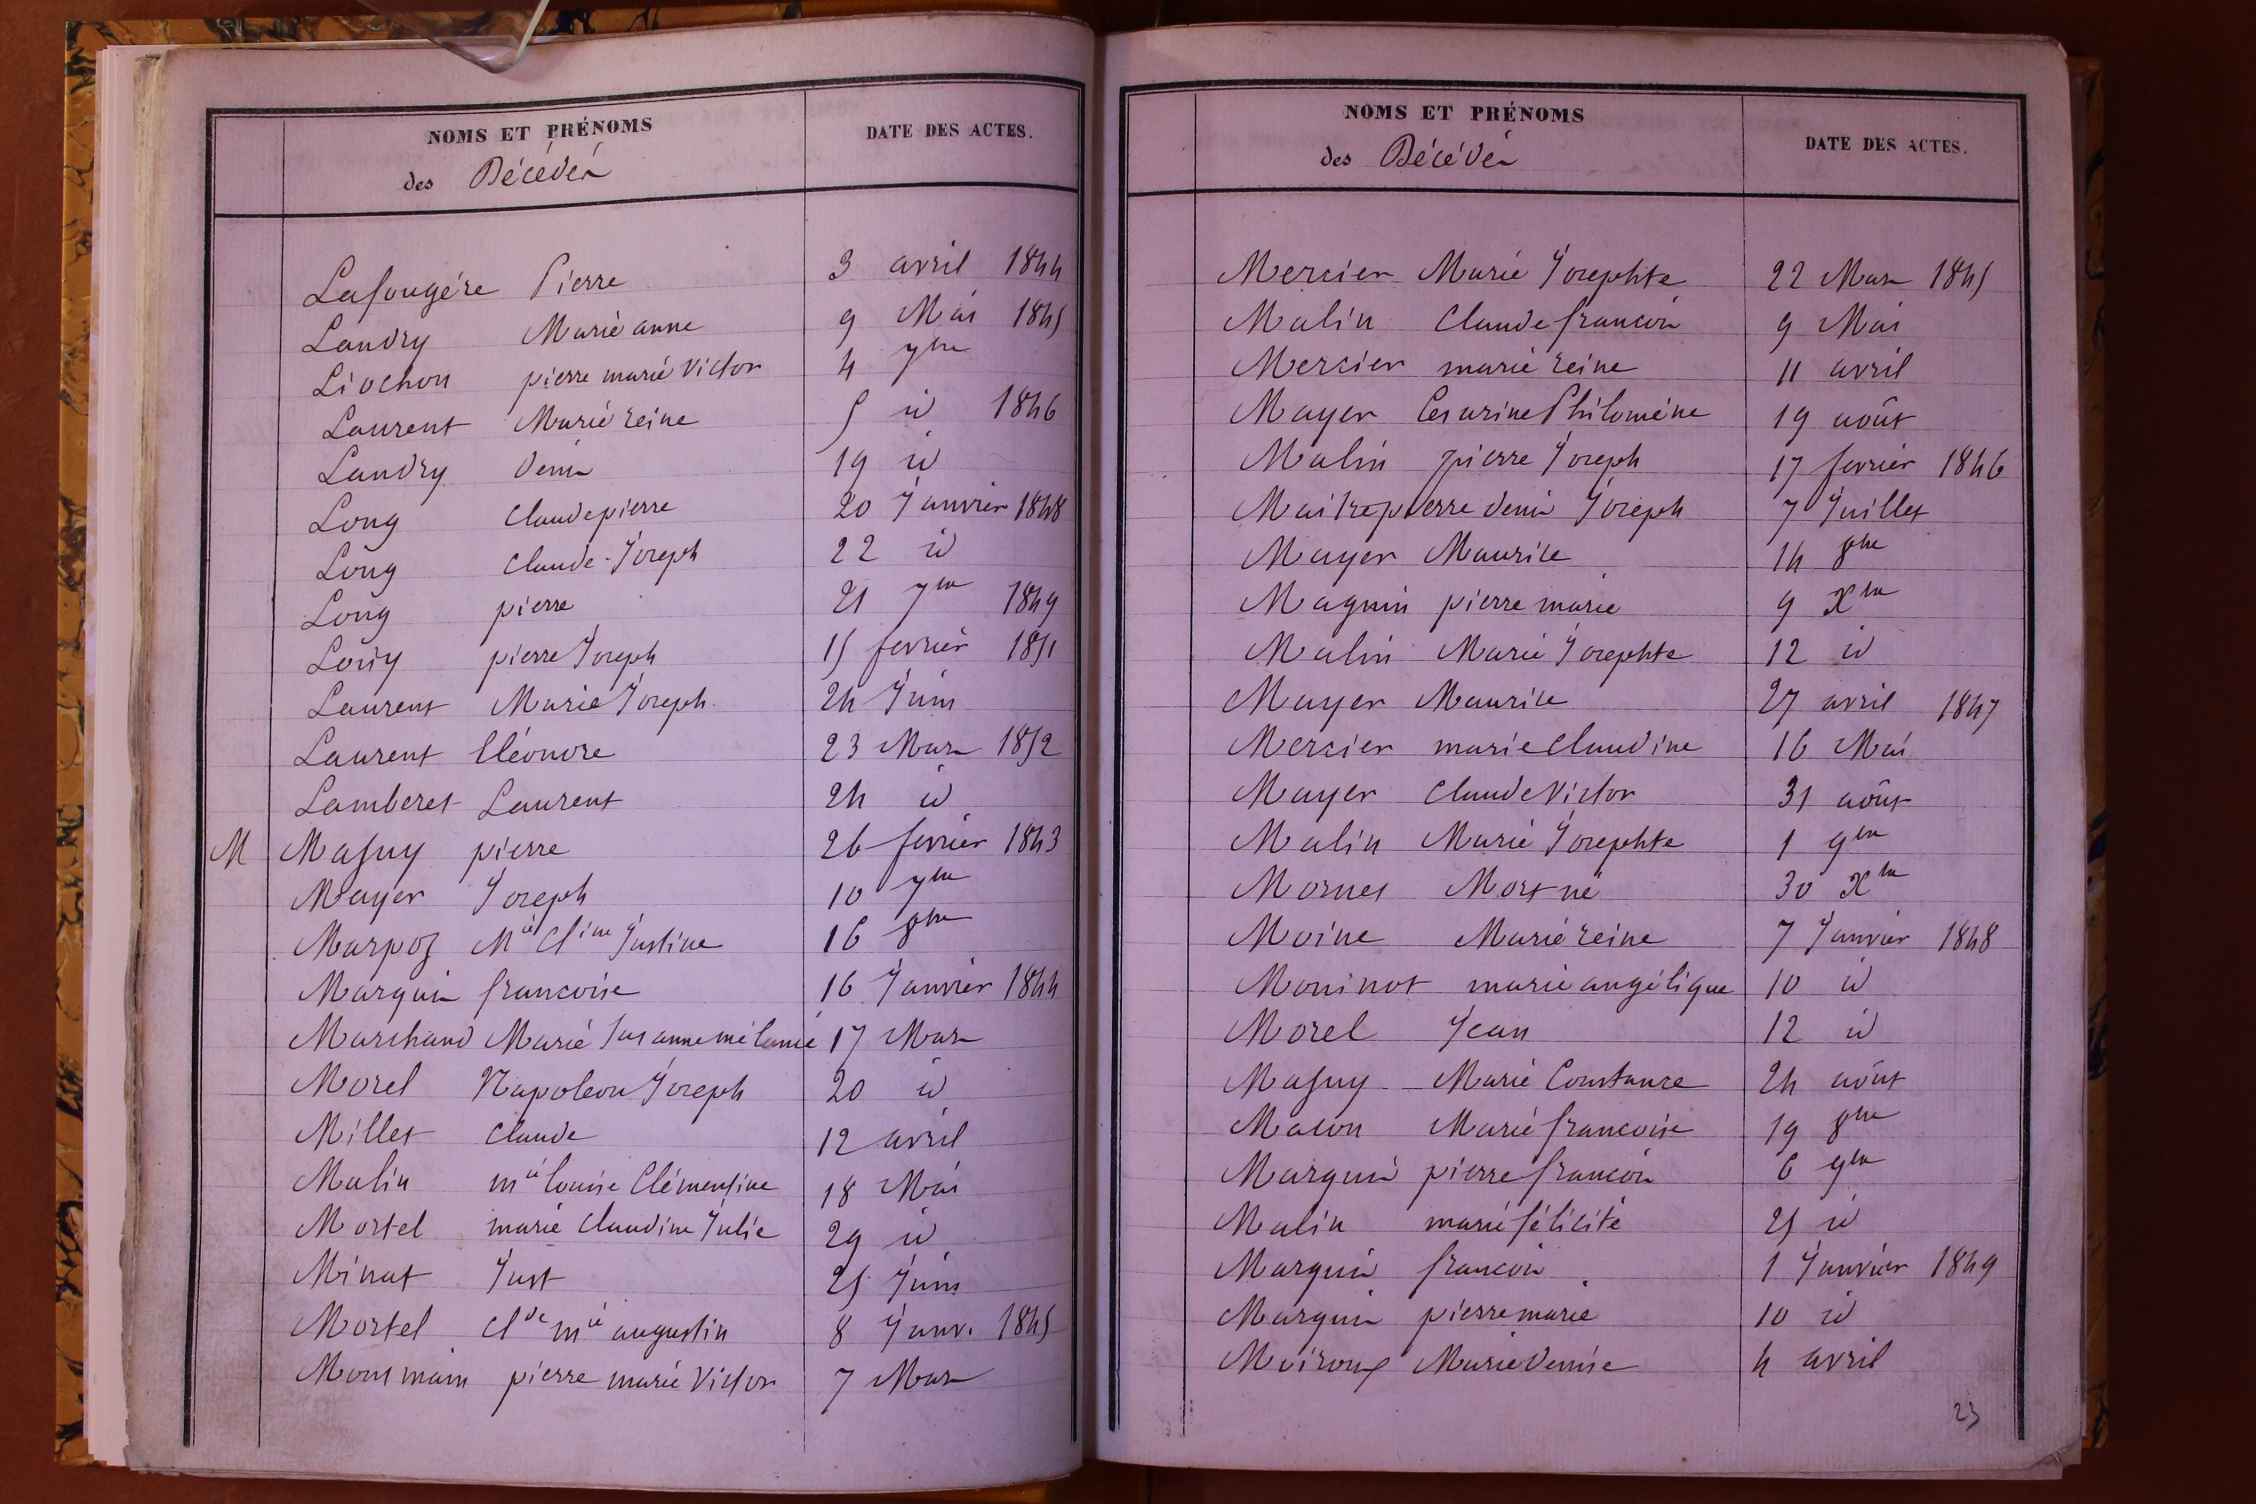 NOMS ET PRÉNOMS
DATE DES ACTES.
des Décédés
Lafougère Pierre 3 avril 1844
Landry Marie anne 9 Mai 1845
Liochon pierre marie Victor 4 7bre
Laurent Marie reine 5 id 1846
Landry denis 19 id
Long Claude pierre 20 Janvier 1848
Long Claude-Joseph 22 id
Long pierre 21 7bre 1849
Long pierre Joseph 15 fevrier 1851
Laurent Marie Joseph 24 Juin
Laurent Eléonore 23 Mars 1852
Lamberet Laurent 24 id
M Masuy pierre 26 fevrier 1843
Mayer Joseph 10 7bre
Marpoz Mie Cline Justine 16 8bre
Marquis francoise 16 Janvier 1844
Marchand Marie Susanne mélanie 17 Mars
Morel Napoléon Joseph 20 id
Millet Claude 12 avril
Malin mie louise Clémentine 18 Mai
Mortel marie Claudine Julie 29 id
Minat Just 25 Juin
Mortel Clde mie augustin 8 Janv. 1845
Monsmain pierre marie Victor 7 Mars
NOMS ET PRÉNOMS
DATE DES ACTES.
des Décédés
Mercier Marie Josephte 22 Mars 1845
Malin Claude francois 9 Mai
Mercier marie reine 11 avril
Mayer Cesarine Philomène 19 août
Malin pierre Joseph 17 fevrier 1846
Maitrepierre denis Joseph 7 Juillet
Mayer Maurice 14 8bre
Magnin pierre marie 9 Xbre
Malin Marie Josephte 12 id
Mayer Maurice 27 avril 1847
Mercier marie Claudine 16 Mai
Mayer Claude Victor 31 août
Malin Marie Josephte 1 9bre
Mornet Mort né 30 Xbre
Moine Marie reine 7 Janvier 1848
Moninot marie angélique 10 id
Morel Jean 12 id
Masuy Marie Constance 24 août
Macon Marie francoise 19 8bre
Marquis pierre francois 6 9bre
Malin marie félicité 25 id
Marquis francois 1 Janvier 1849
Marquis pierre marie 10 id
Moiroux Marie denise 4 avril
23